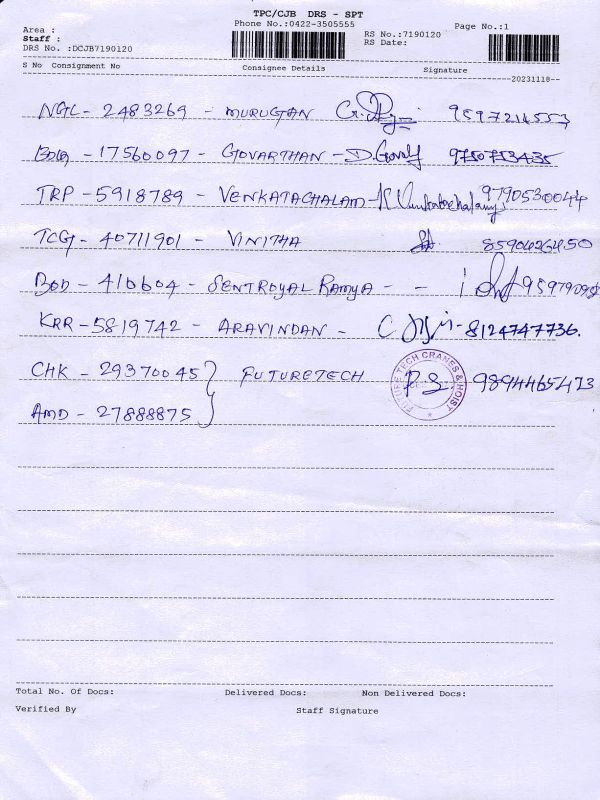 TPC/CJB DRS - SPT
Phone No.:0422-3505555
Page No.:1
Area :
Staff :
DRS No. :DCJB7190120
RS No.:7190120
RS Date:
S No Consignment No Consignee Details Signature
20231118
NGL - 2483269 - MURUGAN 9597214553
BDQ - 17560097 - GOVARTHAN - D.Govaf 9750753435
TRP - 5918789 - VENKATACHALAM - K Venkatachalam 9790530044
TCG - 40711901 - VINITHA
BOD - 410604 - SENTROYAL RAMYA -
KRR - 5819742 - ARAVINDAN - 8124747736.
CHK - 29370045 } FUTURETECH 9894465473
FUTURE TECH CRANES & HOIST
AMD - 27888875
Total No. Of Docs: Delivered Docs: Non Delivered Docs:
Verified By Staff Signature